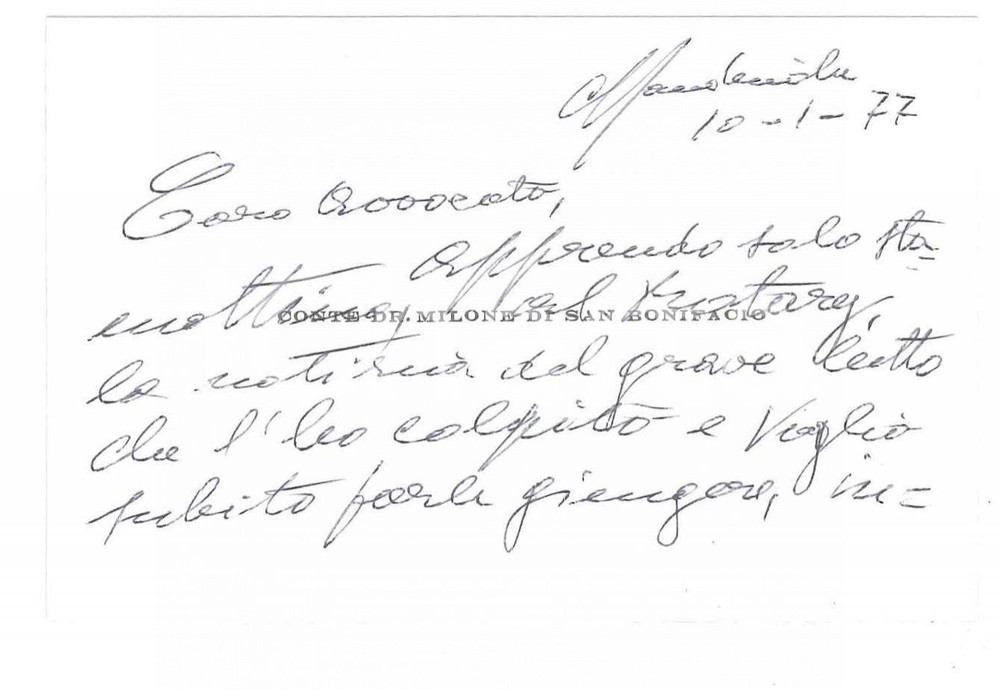 10-1-77
Caro Avvocato,
apprendo solo sta=
mattina, al Rotary,
CONTE DR. MILONE DI SAN BONIFACIO
la notizia del grave lutto
che l'ha colpito e voglio
subito farle giungere, in=